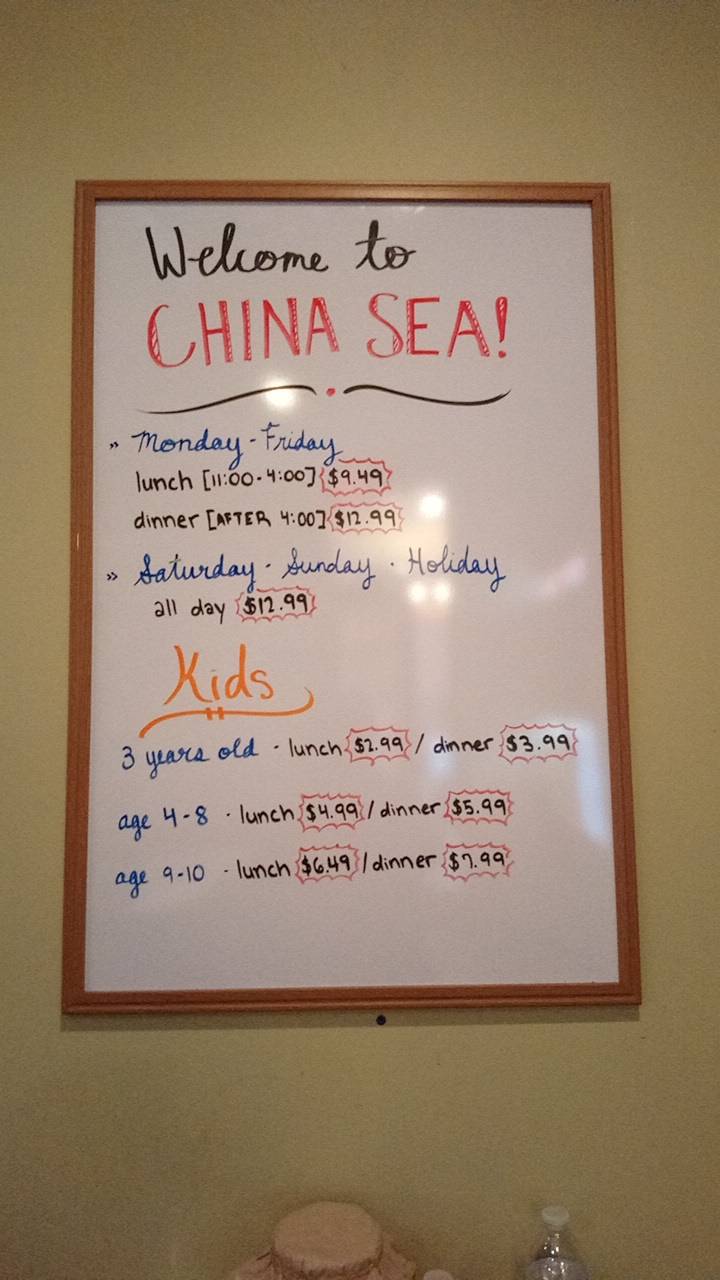 Welcome to
CHINA SEA!
» Monday - Friday
lunch [11:00 - 4:00] $9.49
dinner [AFTER 4:00] $12.99
» Saturday · Sunday · Holiday
all day $12.99
Kids
3 years old - lunch $2.99 / dinner $3.99
age 4-8 - lunch $4.99 / dinner $5.99
age 9-10 - lunch $6.49 / dinner $7.99